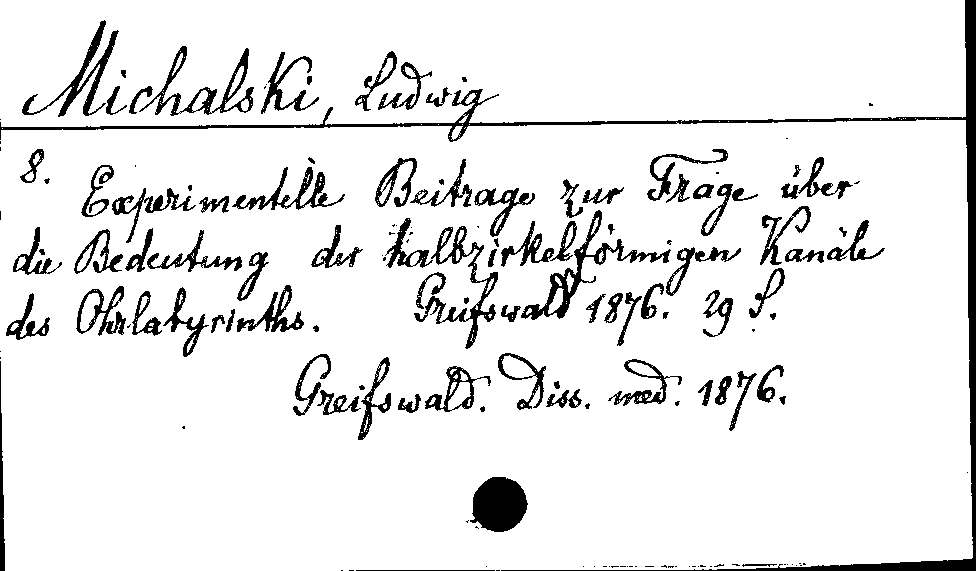 Michalski, Ludwig
8. Experimentelle Beitrage zur Frage über
die Bedeutung der halbzirkelförmigen Kanäle
des Ohrlabyrinths. Greifswald 1876. 29 S.
Greifswald. Diss. med. 1876.